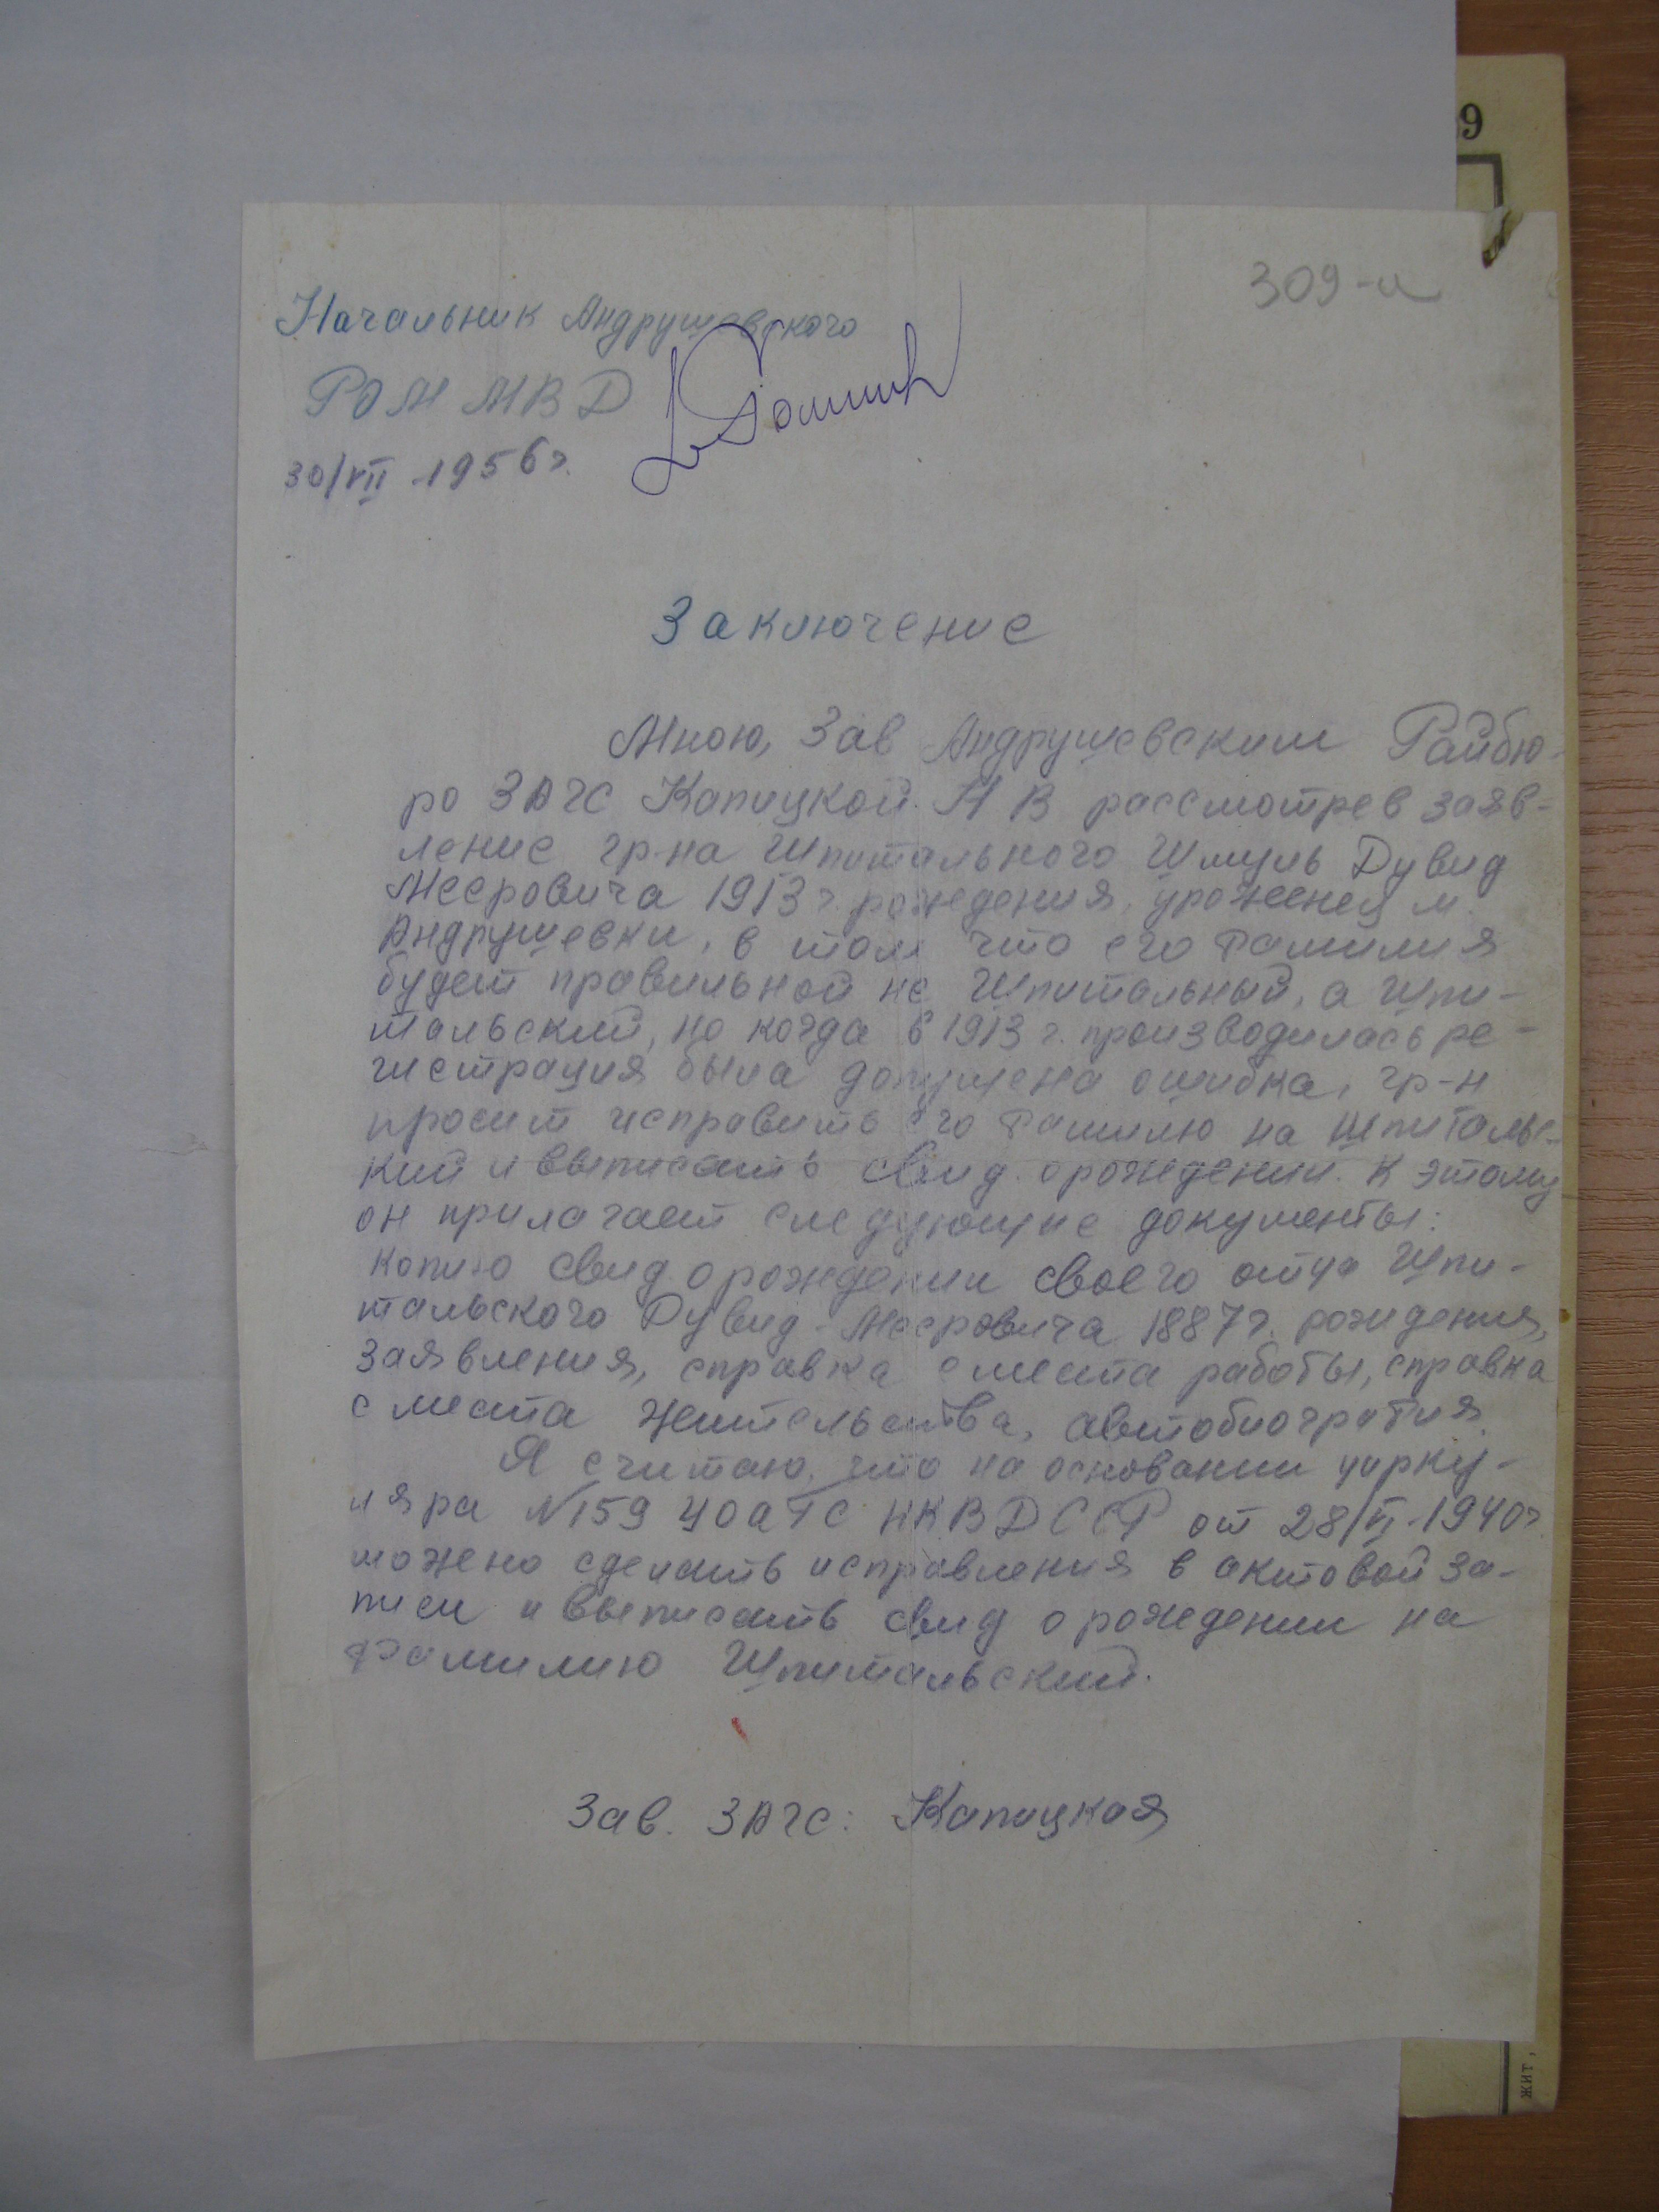 9
309-и
Начальник Андрушевского
РОМ МВД
30/VII 1956 г.
Заключение
Мною, Зав Андрушевским Райбю-
ро ЗАГС Капицкой Н В рассмотрев заяв-
ление гр-на Шпитального Шмуль Дувид
Меєровича 1913 г. рождения, уроженец м.
Андрушевки, в том что его фамилия
будет правильной не Шпитальный, а Шпи-
тальский, но когда в 1913 г. производилась ре-
гистрация была допущена ошибка, гр-н
просит исправить его фамилю на Шпитальс-
кий и выписать свид. о рождении. К этому
он прилагает следующие документы:
копию свид о рождении своего отца Шпи-
тальского Дувид-Меєровича 1887 г. рождения,
заявления, справка с места работы, справка
с места жительства, автобиография.
Я считаю, что на основании цирку-
ляра №159 УОАГС НКВД СССР от 28/VI-1940 г.
можено сделать исправления в актовой за-
писи и выписать свид о рождении на
фамилию Шпитальский.
Зав. ЗАГС: Капицкая
жит,